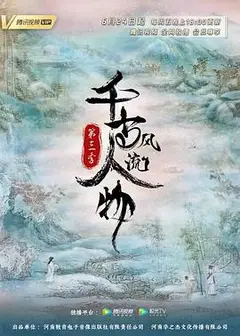 腾讯视频VIP
6月24日起 每周五晚上18:00更新
腾讯视频 全网独播 会员尊享
千古风流人物
第三季
独播平台： 腾讯视频
出品单位：河南教育电子音像出版社有限责任公司 河南华之杰文化传播有限公司